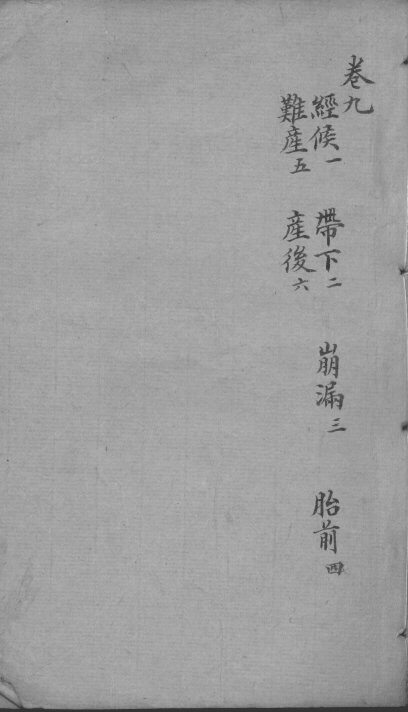 卷九
經候一 帶下二 崩漏三 胎前四
難產五 產後六